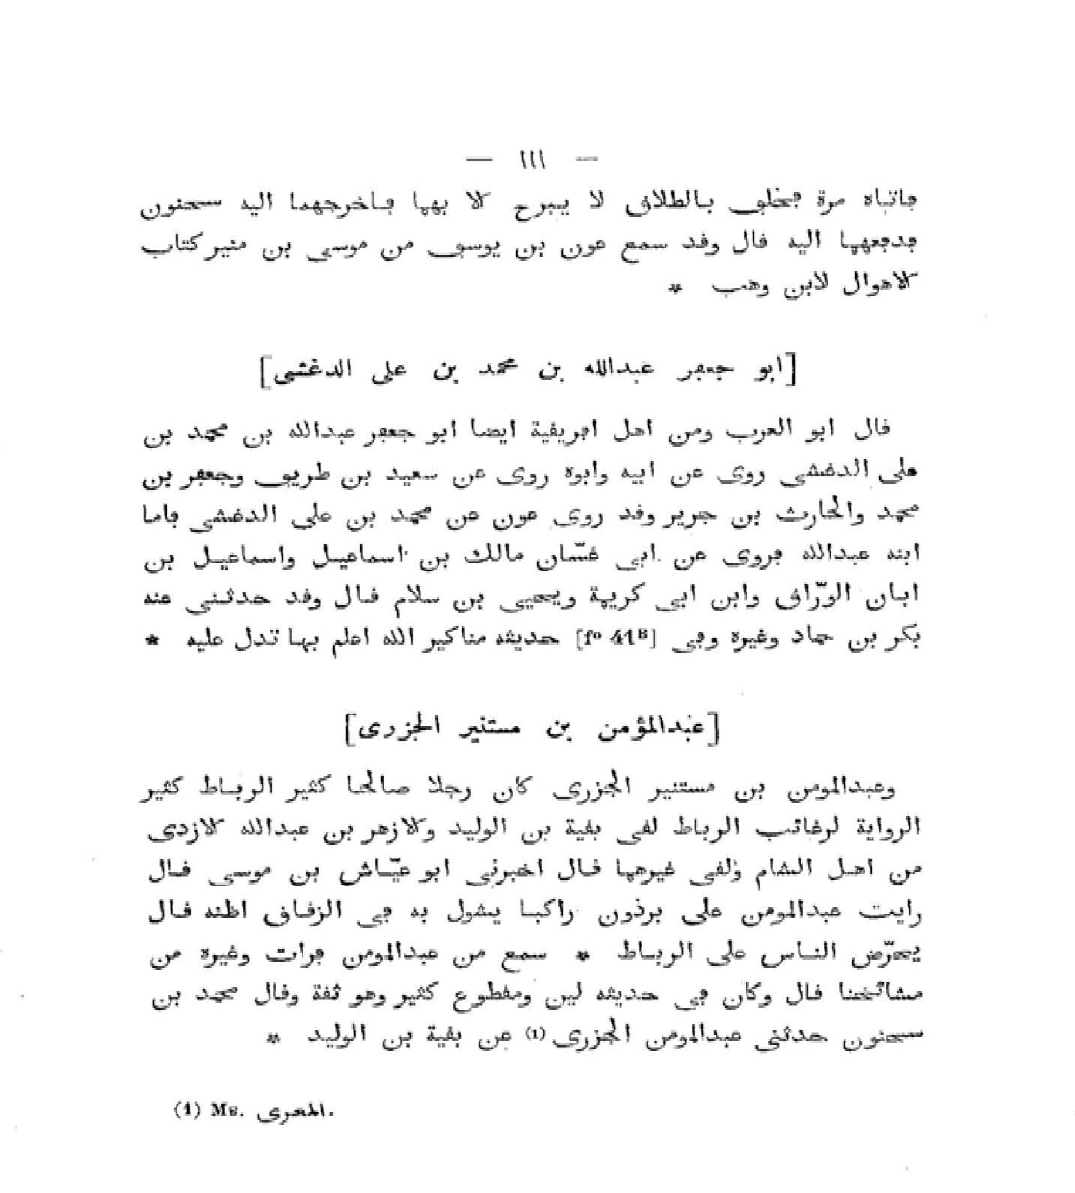 — ١١١ —
فاتياه مرة فحلف بالطلاق لا يبرح الا بهما فاخرجهما اليه سحنون
فدفعهما اليه قال وقد سمع عون بن يوسف من موسى بن منير كتاب
الاهوال لابن وهب *
[ابو جعفر عبدالله بن محمد بن على الدغشى]
قال ابو العرب ومن اهل افريقية ايضا ابو جعفر عبدالله بن محمد بن
على الدغشى روى عن ابيه وابوه روى عن سعيد بن طريف وجعفر بن
محمد والحارث بن جرير وقد روى عون عن محمد بن على الدغشى فاما
ابنه عبدالله فروى عن ابى غسّان مالك بن اسماعيل واسماعيل بن
ابان الورّاق وابن ابى كريمة ويحيى بن سلام قال وقد حدثنى عنه
بكر بن حماد وغيره وفى [fº 41ᴮ] حديثه مناكير الله اعلم بها تدل عليه *
[عبدالمؤمن بن مستنير الجزرى]
وعبدالمومن بن مستنير الجزرى كان رجلا صالحا كثير الرباط كثير
الرواية لرغائب الرباط لقى بقية بن الوليد والازهر بن عبدالله الازدى
من اهل الشام ولقى غيرهما قال اخبرنى ابو عيّاش بن موسى قال
رايت عبدالمومن على برذون راكبا يشول به فى الزقاق اظنه قال
يحرّض الناس على الرباط * سمع من عبدالمومن فرات وغيره من
مشائخنا قال وكان فى حديثه لين ومقطوع كثير وهو ثقة وقال محمد بن
سحنون حدثنى عبدالمومن الجزرى (1) عن بقية بن الوليد *
(1) Ms. المعرى.